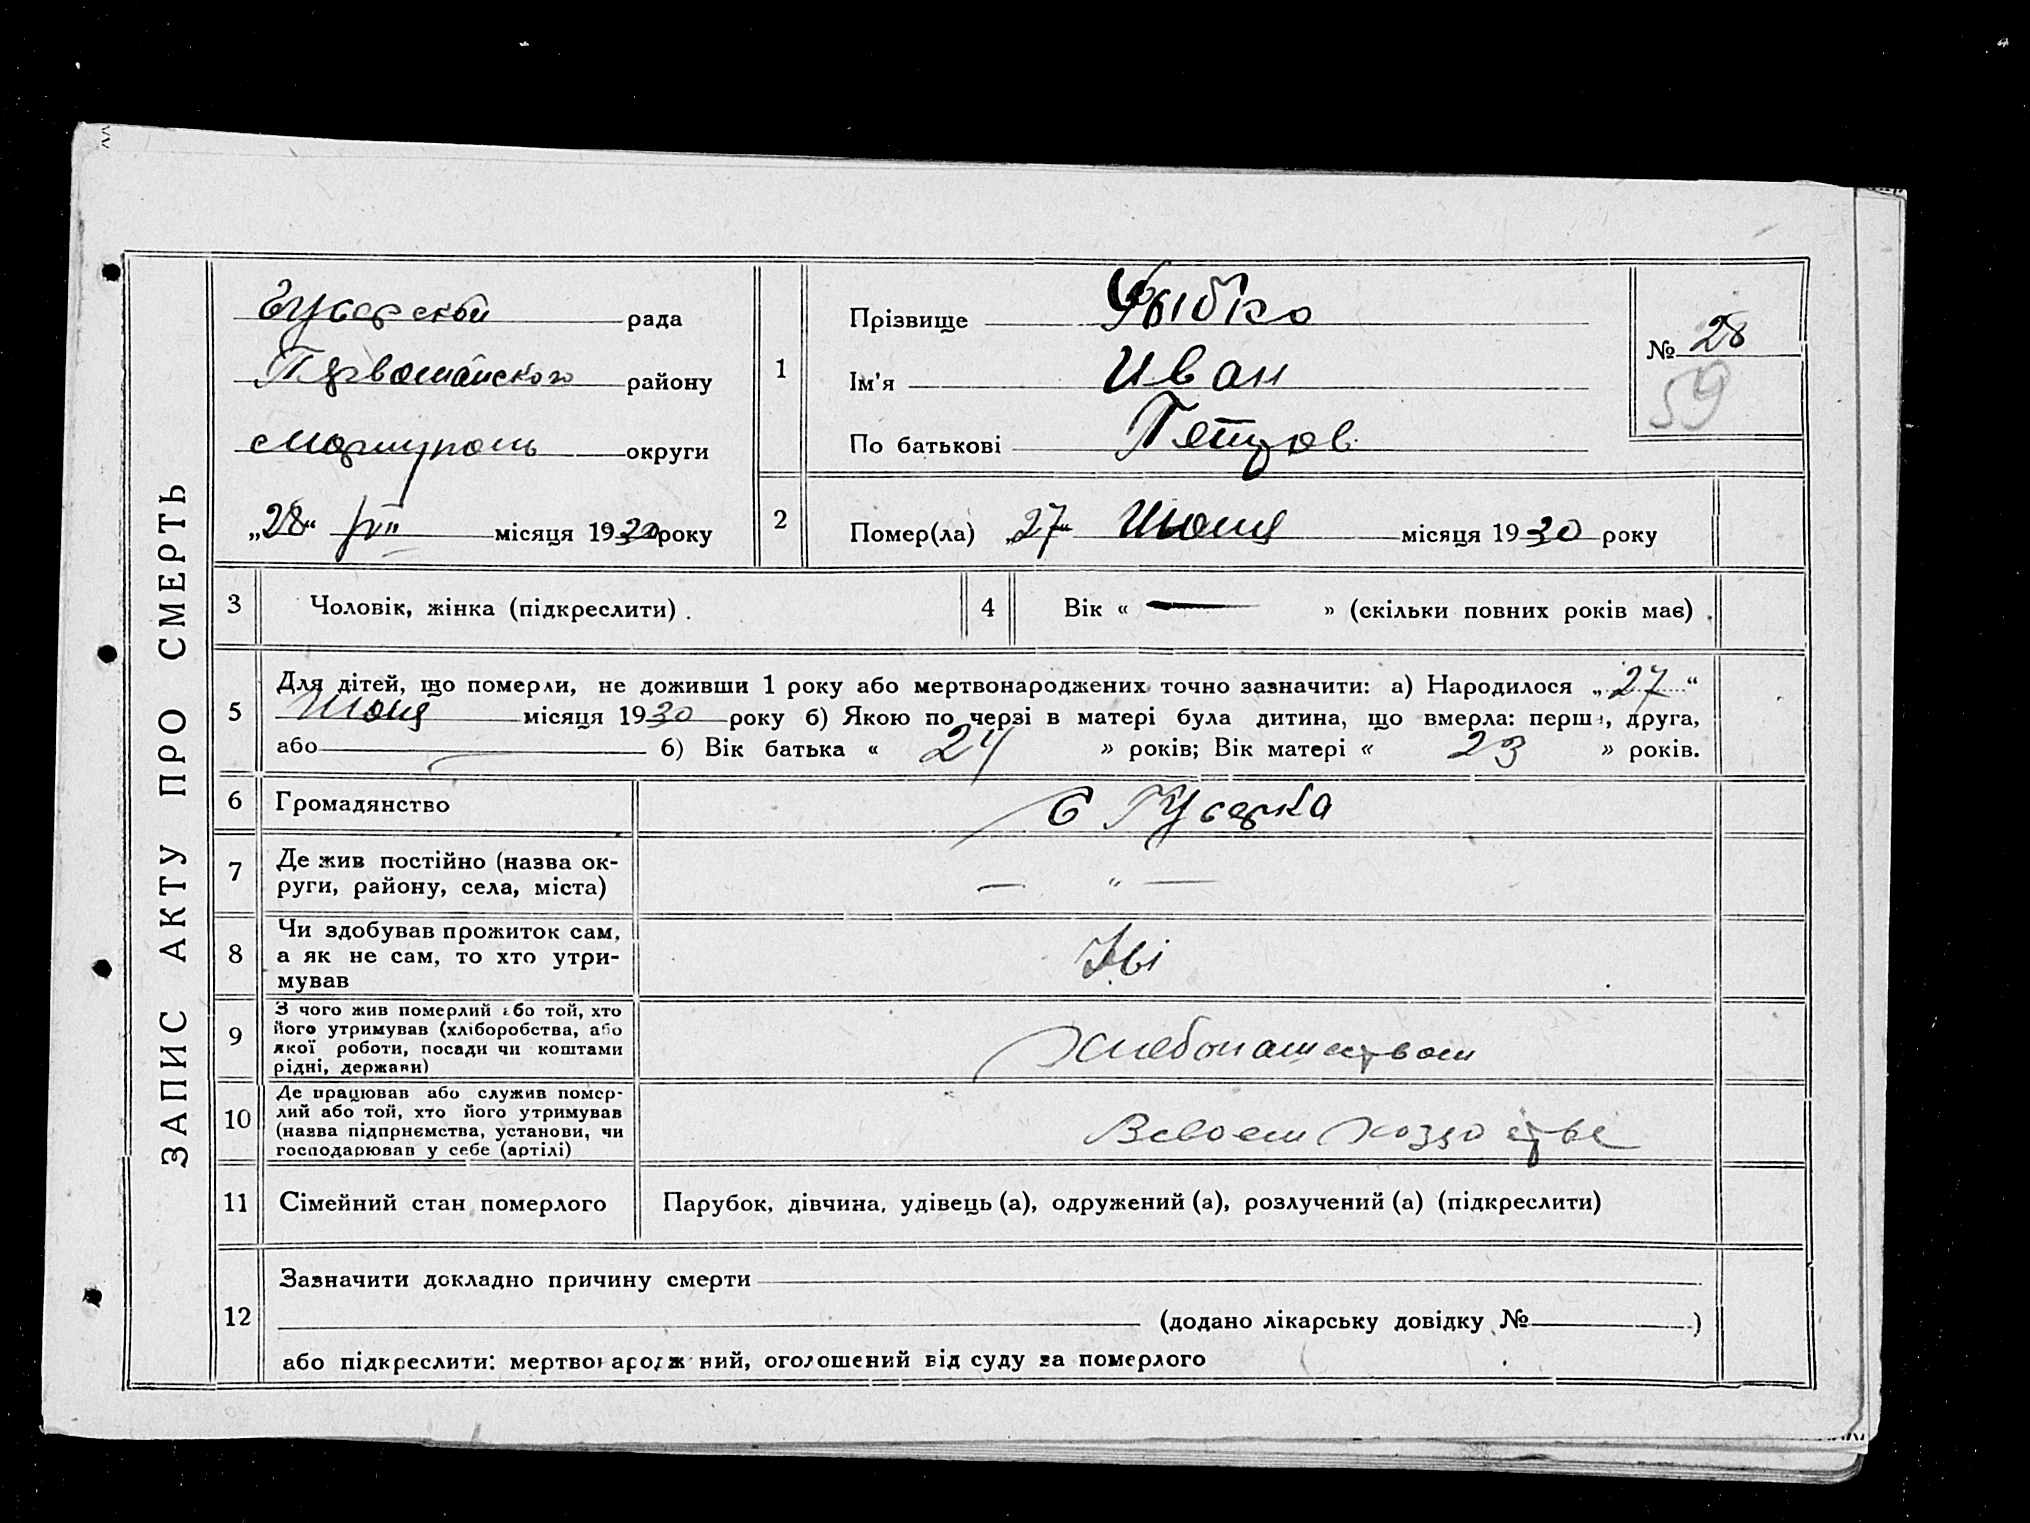 ЗАПИС АКТУ ПРО СМЕРТЬ
рада
району
округи
„28“ місяця 1930 року
1
Прізвище Рыбко
Ім'я Иван
По батькові Петров
№ 28
59
2
Помер(ла) „27“ Июня місяця 1930 року
3
Чоловік, жінка (підкреслити).
4
Вік « — » (скільки повних років має).
5
Для дітей, що померли, не доживши 1 року або мертвонароджених точно зазначити: а) Народилося „27“
Июня місяця 1930 року б) Якою по черзі в матері була дитина, що вмерла: перша, друга,
або б) Вік батька « 24 » років; Вік матері « 23 » років.
6
Громадянство
7
Де жив постійно (назва ок-
руги, району, села, міста)
— " —
8
Чи здобував прожиток сам,
а як не сам, то хто утри-
мував
9
З чого жив померлий або той, хто
його утримував (хліборобства, або
якої роботи, посади чи коштами
рідні, держави)
Хлебопашеством
10
Де працював або служив помер-
лий або той, хто його утримував
(назва підприємства, установи, чи
господарював у себе (артілі)
В своем
11
Сімейний стан померлого
Парубок, дівчина, удівець (а), одружений (а), розлучений (а) (підкреслити)
12
Зазначити докладно причину смерти
(додано лікарську довідку № )
або підкреслити: мертвонароджений, оголошений від суду за померлого